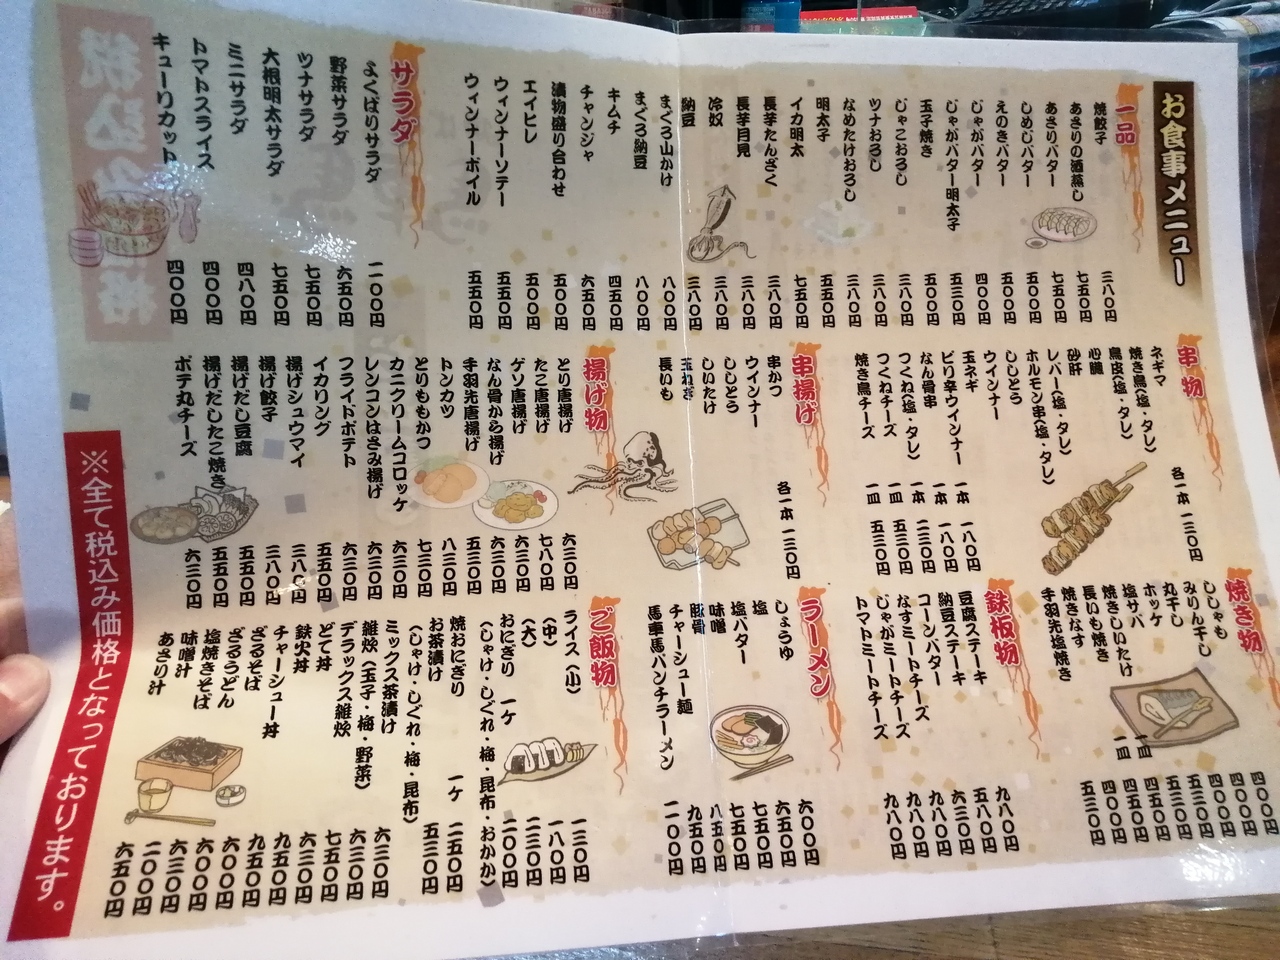 お食事メニュー
一品
焼餃子 三八〇円
あさりの酒蒸し 七五〇円
あさりバター 七五〇円
しめじバター 五〇〇円
えのきバター 五〇〇円
じゃがバター 四〇〇円
じゃがバター明太子 五三〇円
玉子焼き 五〇〇円
じゃこおろし 三八〇円
ツナおろし 三八〇円
なめたけおろし 三八〇円
明太子 五五〇円
イカ明太 七五〇円
長芋たんざく 三八〇円
長芋月見 三八〇円
冷奴 三八〇円
納豆 三八〇円
まぐろ山かけ 八〇〇円
まぐろ納豆 八〇〇円
キムチ 四五〇円
チャンジャ 六五〇円
漬物盛り合わせ 五〇〇円
エイヒレ 五〇〇円
ウィンナーソテー 五五〇円
ウィンナーボイル 五五〇円
サラダ
よくばりサラダ
野菜サラダ 六五〇円
ツナサラダ 七五〇円
大根明太サラダ 七五〇円
ミニサラダ 四八〇円
トマトスライス 四〇〇円
キューリカット 四〇〇円
串物
ネギマ
焼き鳥(塩・タレ)
鳥皮(塩・タレ)
心臓
砂肝
レバー(塩・タレ)
ホルモン串(塩・タレ)
ししとう
ウインナー
玉ネギ
各一本 一三〇円
ビリ辛ウインナー 一本 一八〇円
なん骨串 一本 一八〇円
つくね(塩・タレ) 一本 二三〇円
つくねチーズ 一皿 五三〇円
焼き鳥チーズ 一皿 五三〇円
串揚げ
串かつ
ウインナー
ししとう
しいたけ
玉ねぎ
長いも
各一本 一三〇円
揚げ物
とり唐揚げ 六三〇円
たこ唐揚げ 七八〇円
ゲソ唐揚げ 六三〇円
なん骨から揚げ 六三〇円
手羽先唐揚げ 五三〇円
トンカツ 八三〇円
とりももかつ 七三〇円
カニクリームコロッケ 六三〇円
レンコンはさみ揚げ 六三〇円
フライドポテト 六三〇円
イカリング 五五〇円
揚げシュウマイ 三八〇円
揚げ餃子 三八〇円
揚げだし豆腐 五五〇円
揚げだしたこ焼き 五五〇円
ボテ丸チーズ 六三〇円
焼き物
ししゃも 四〇〇円
みりん干し 四〇〇円
丸干し 四〇〇円
ホッケ 五五〇円
塩サバ 五五〇円
焼きしいたけ 一皿 四五〇円
長いも焼き 一皿 四五〇円
焼きなす 四〇〇円
手羽先塩焼き 五三〇円
鉄板物
豆腐ステーキ 九八〇円
納豆ステーキ 五八〇円
コーンバター 六三〇円
なすミートチーズ 九八〇円
じゃがミートチーズ 九八〇円
トマトミートチーズ 九八〇円
ラーメン
しょうゆ 六〇〇円
塩 六五〇円
塩バター 七五〇円
味噌 七五〇円
豚骨 八五〇円
チャーシュー麺 九五〇円
馬車馬パンチラーメン
ご飯物
ライス(小) 一三〇円
(中) 一八〇円
(大) 二三〇円
おにぎり 一ケ 二〇〇円
(しゃけ・しぐれ・梅・昆布・おかか)
焼おにぎり 一ケ 二五〇円
お茶漬け 五三〇円
(しゃけ・しぐれ・梅・昆布)
ミックス茶漬け 六三〇円
雑炊(玉子・梅・野菜) 六三〇円
デラックス雑炊 七五〇円
どて丼 六三〇円
鉄火丼 九五〇円
チャーシュー丼 九五〇円
ざるそば 六〇〇円
ざるうどん 六〇〇円
塩焼きそば 六三〇円
味噌汁 二〇〇円
あさり汁 六五〇円
※全て税込み価格となっております。